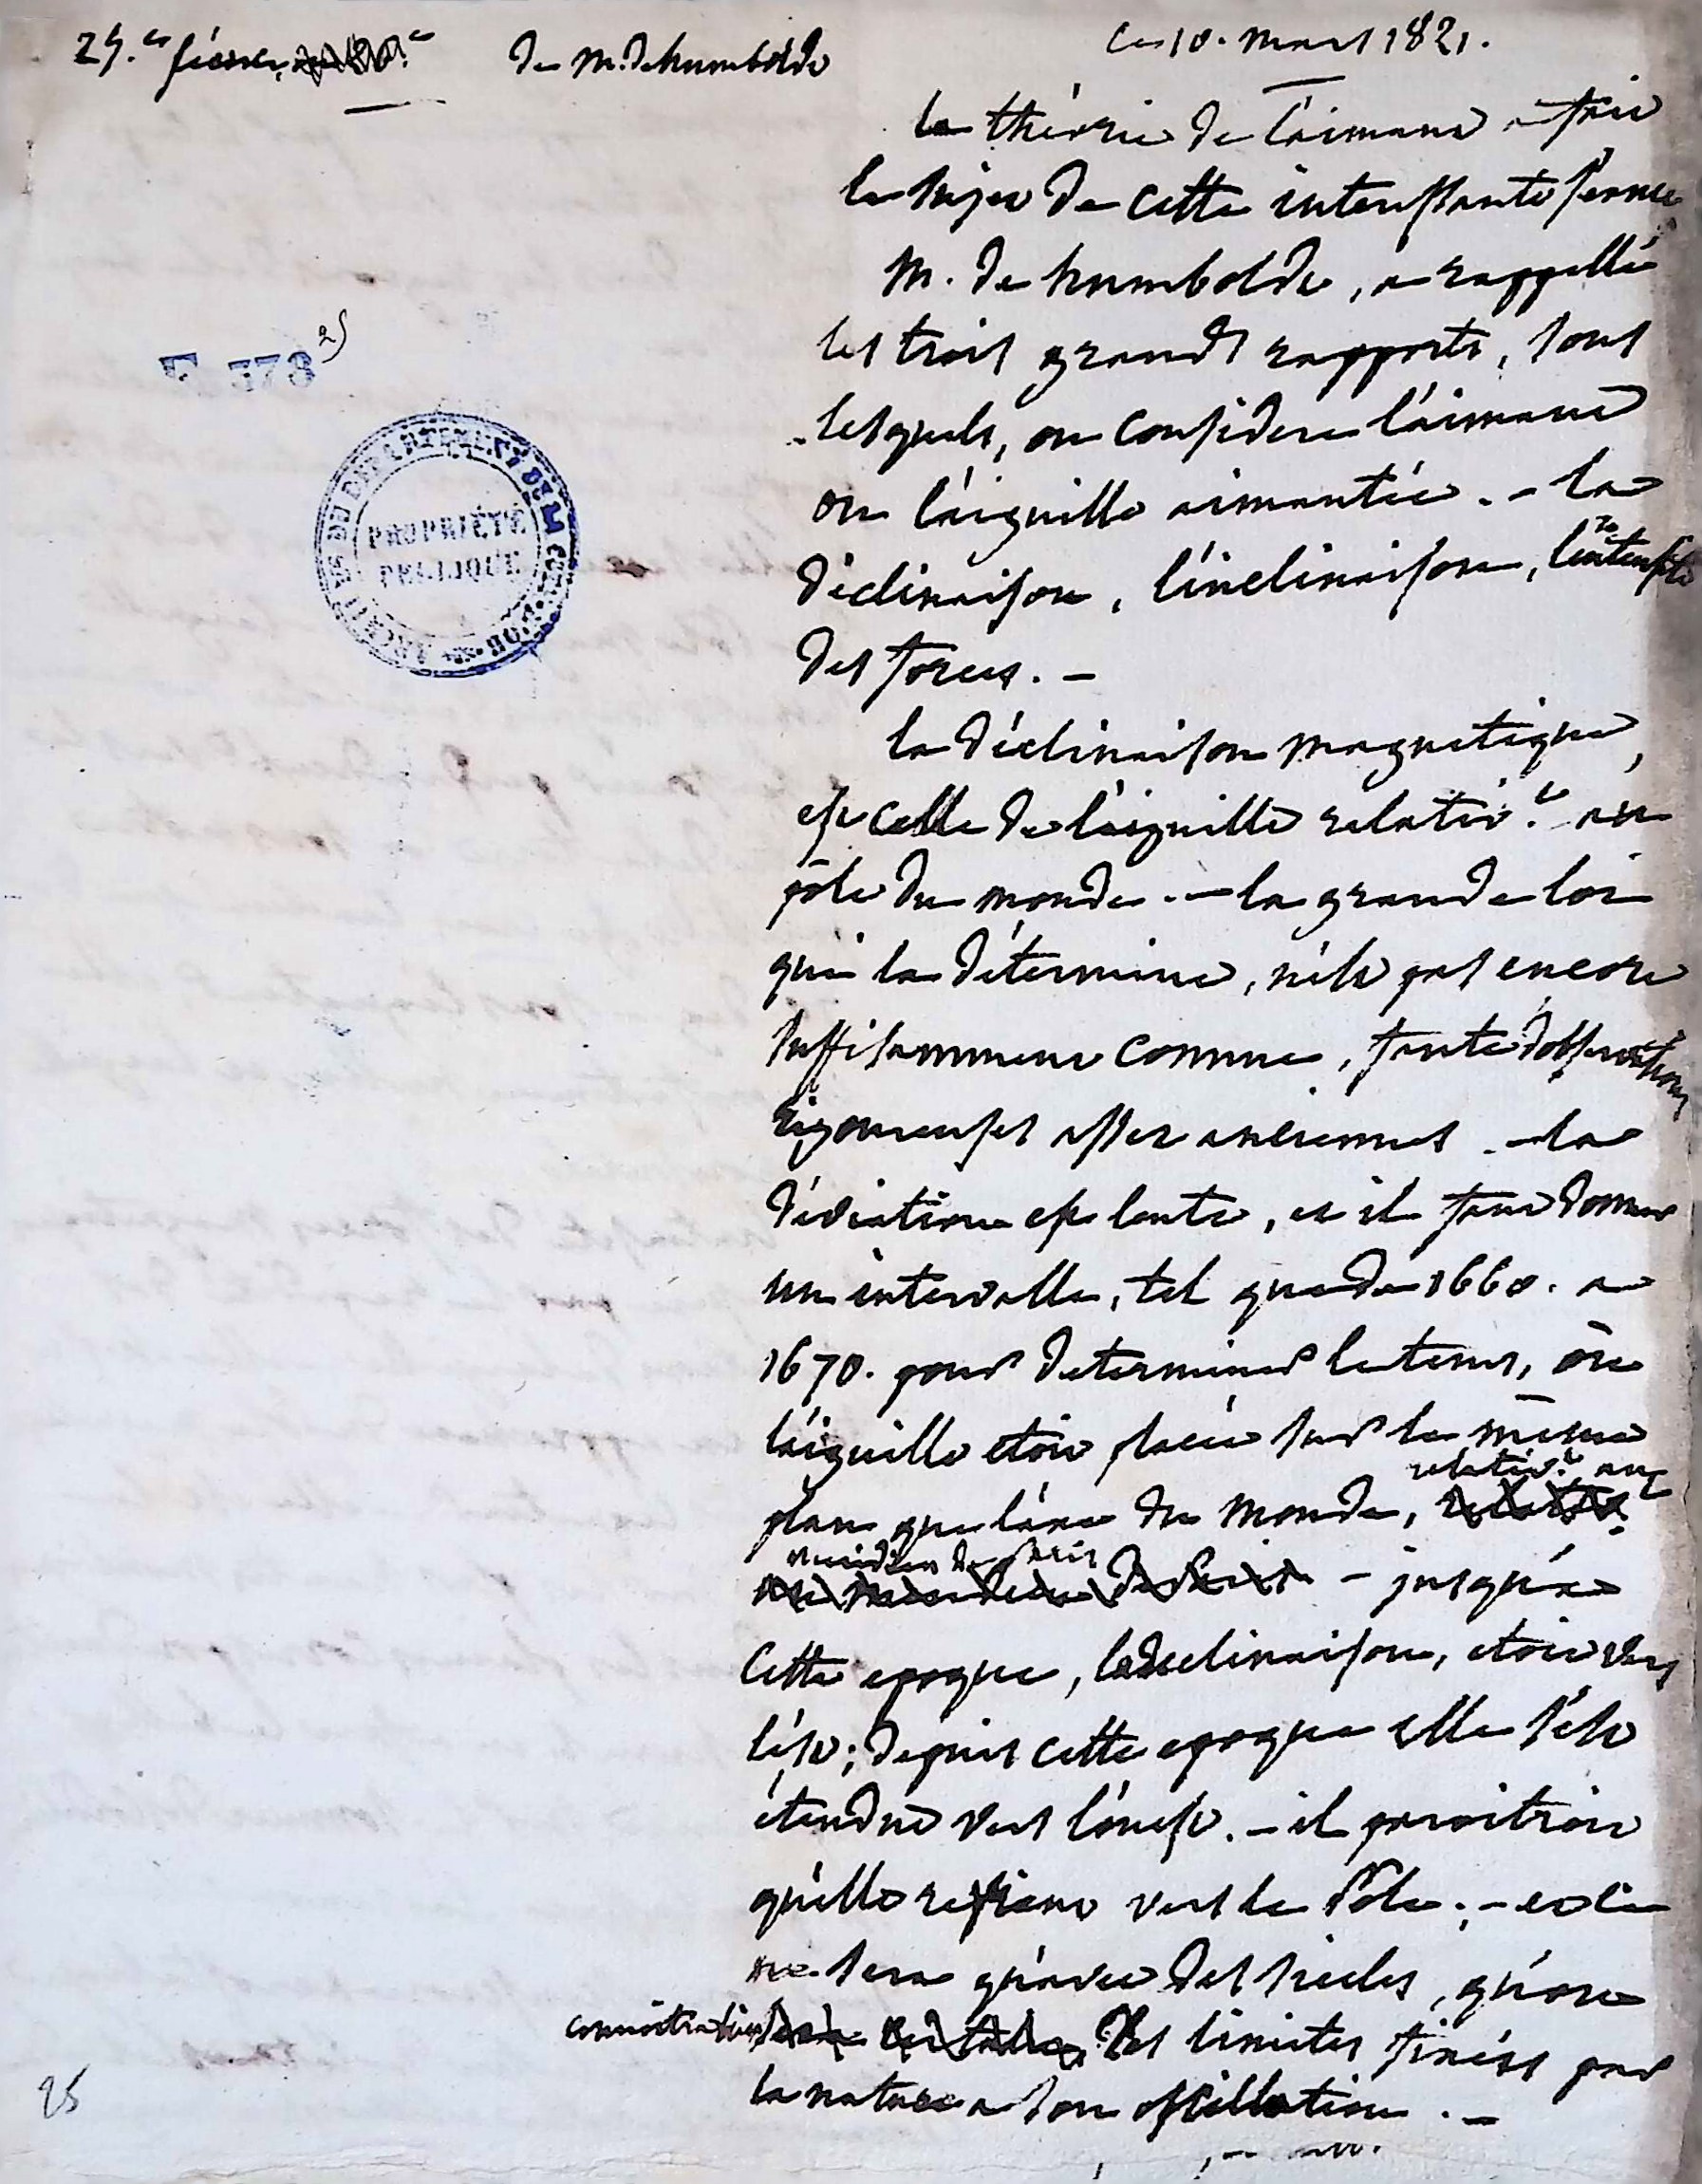 25.e séance, de M. de humboldt
Ce 10. Mars 1821.
la théorie de l'aimant a fait
le sujet de cette interessante séance
M. de humboldt, a rappellé
les trois grands rapports, sous
lesquels, on considere l'aimant
ou l'aiguille aimantée. - la
déclinaison, l'inclinaison, l'intensité
des forces. -
E 378 25
ARCHIVES DU DÉPARTEMENT DE LA COTE-D'OR
PROPRIÉTÉ
PUBLIQUE
la déclinaison magnetique,
est celle de l'aiguille relativ.t au
pôle du monde. - la grande loi
qui la détermine, n'est pas encore
suffisamment connue, faute d'observations
rigoureuses assez anciennes. - la
déviation est lente, et il faut donner
un intervalle, tel que de 1660. a
1670. pour determiner le tems, òu
l'aiguille etoit placée sur le même
plan que l'axe du monde, relativ.t au
meridien de Paris - jusqu'à
cette epoque, la declinaison, etoit vers
l'est; depuis cette epoque elle s'est
étendue vers l'ouest. - il paroitroit
qu'elle revient vers le Pôle; - et ce
ne sera qu'avec des siecles, qu'on
connoitra les limites fixées par
la nature a son oscillation. -
25